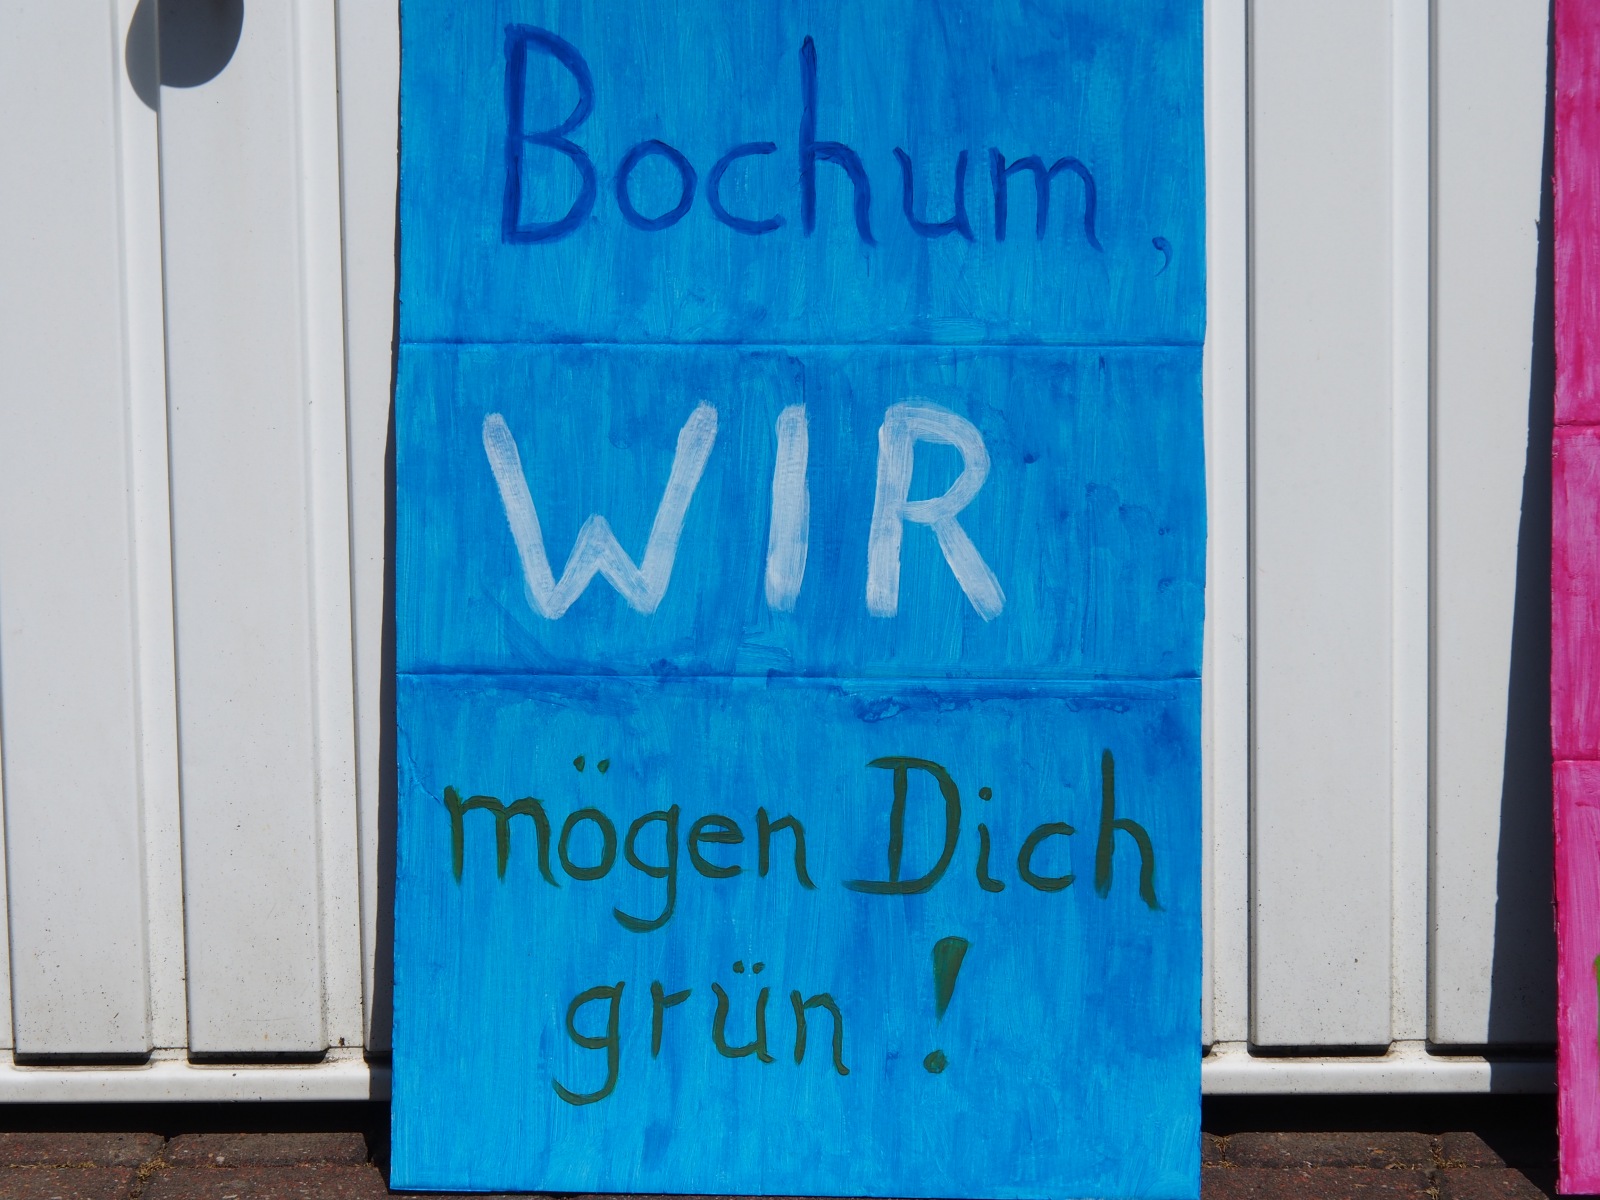 Bochum,
WIR
mögen Dich
grün!